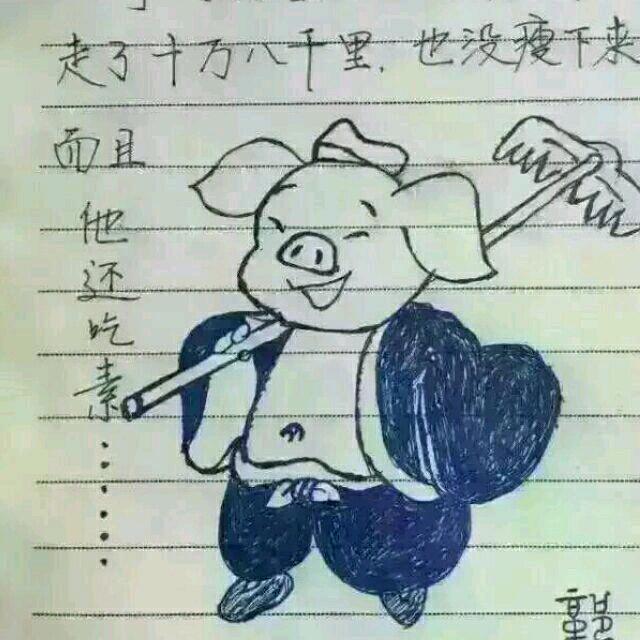 走了十万八千里，也没瘦下来
而且
他
还
吃
素
……